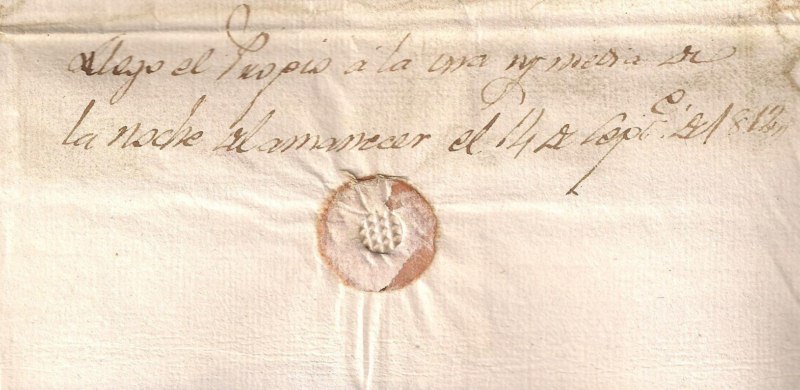 Llego el Propio á la una y media de
la noche al amanecer el 14 de Sept.e de